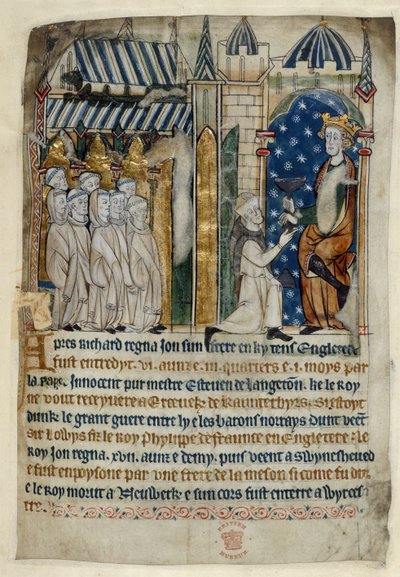 Apres Richard regna Jon sun frere en ky tens Engletere
fust entredyt .vi. aunz e .iii. quarters e .i. moys par
la pape Innocent pur mestre Estevene de Langeton. ke le Roy
ne vout receyvere a Ercevek de Kaunterbyrs.
dunk le grant guere entre ly e les barons norrays Dunt veent
sir Lowys fiz le Roy Phylype de fraunce en Engletere. le
Roy Jon regna .xvii. aunz e demy. puis veent a Swynesheved
e fust enpoysone par une frere de la meson si come fu dit.
e le Roy morut a Neuwerk e sun cors fust enterre a Wyrces
tre.
BRITISH
MUSEUM